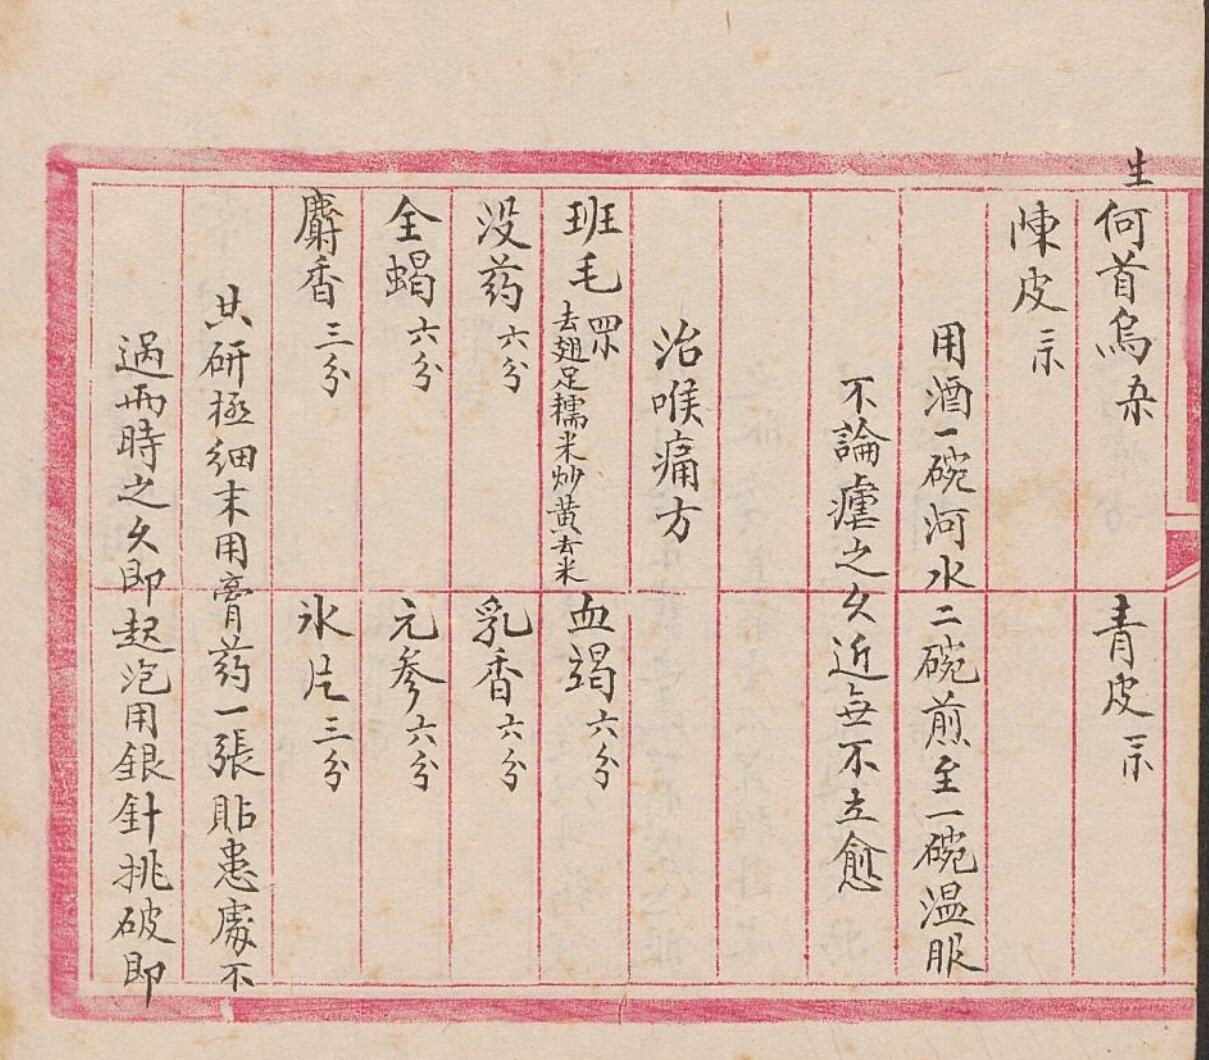 生何首烏 青皮
陳皮
用酒一碗河水二碗煎至一碗温服
不論瘧之久近無不立愈
治喉痛方
班毛 去翅足糯米炒黄去米 血竭六分
没药六分 乳香六分
全蝎六分 元参六分
麝香三分 氷片三分
共研極细末用膏药一張貼患處不
過両時之久即起泡用銀針挑破即